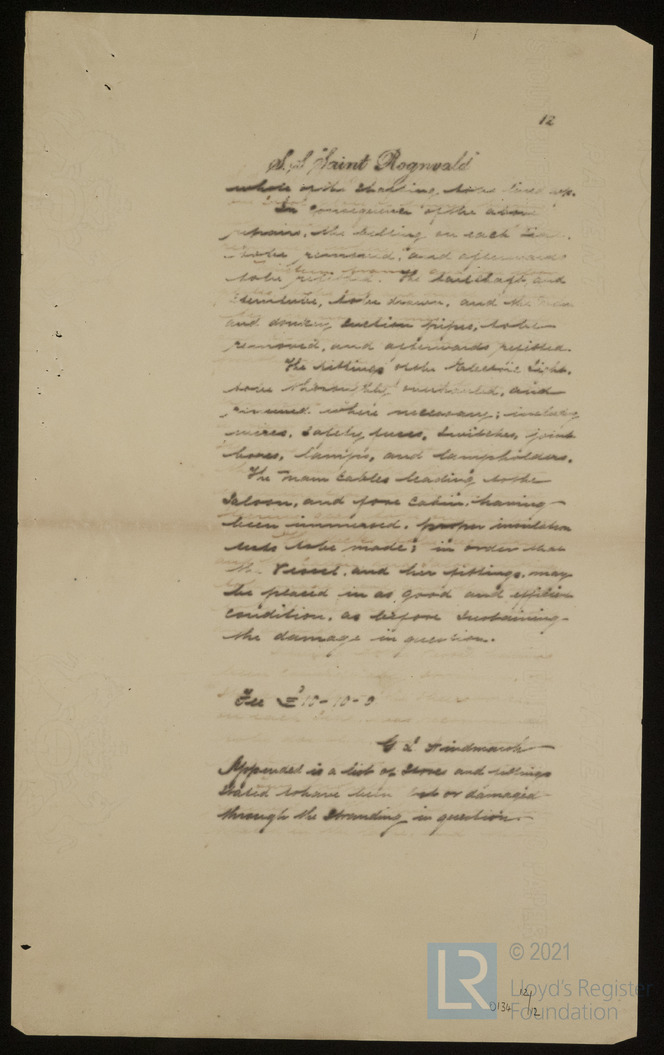 12
S.S. "Saint Rognvald"
whole of the
In consequence of the above
repairs, the on each
to be removed, and afterwards
to be refitted. The tailshaft and
to be drawn, and the
and donkey suction pipes, to be
removed, and afterwards refitted.
The fittings of the Electric Light,
to be thoroughly overhauled, and
renewed where necessary; including
wires, safety fuses, switches, joint
boxes, lamps, and lampholders.
The main cables leading to the
Saloon, and fore cabin, having
been immersed, proper insulation
tests to be made; in order that
the Vessel, and her fittings, may
be placed in as good and efficient
condition, as before sustaining
the damage in question.
Fee £10-10-0
Hindmarsh
Appended is a list of stores and fittings
stated to have been lost or damaged
through the stranding in question.
LR © 2021
Lloyd's Register
Foundation
12/12